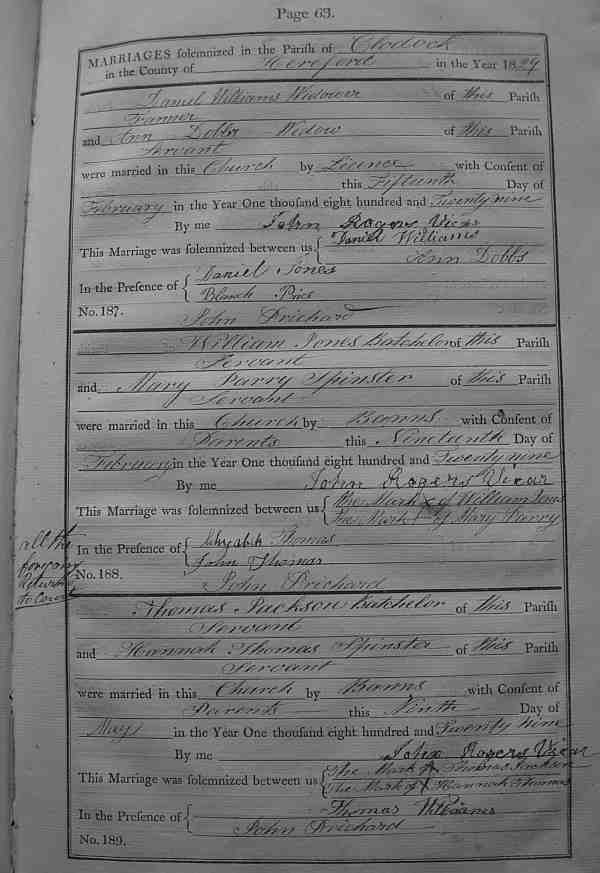 Page 63.
MARRIAGES solemnized in the Parish of Clodock
in the County of Hereford in the Year 1829
Daniel Williams Widower of this Parish
Farmer
and Ann Dobbs Widow of this Parish
Servant
were married in this Church by Licence with Consent of
this Fifteenth Day of
February in the Year One thousand eight hundred and Twenty nine
By me John Rogers Vicar
This Marriage was solemnized between us { Daniel Williams
Ann Dobbs
In the Presence of { Daniel Jones
Blanch Price
No. 187. John Prichard
William Jones Batchelor of this Parish
Servant
and Mary Parry Spinster of this Parish
Servant
were married in this Church by Banns with Consent of
Parents this Nineteenth Day of
February in the Year One thousand eight hundred and Twenty nine
By me John Rogers Vicar
This Marriage was solemnized between us { The Mark x of William Jones
The Mark of Mary Parry
all the
In the Presence of { Thomas
John Thomas
No. 188. John Prichard
Thomas Jackson Batchelor of this Parish
Servant
and Hannah Thomas Spinster of this Parish
Servant
were married in this Church by Banns with Consent of
Parents this Ninth Day of
May in the Year One thousand eight hundred and Twenty nine
By me John Rogers Vicar
This Marriage was solemnized between us { The Mark of Thomas Jackson
The Mark of Hannah Thomas
In the Presence of { Thomas Williams
John Prichard
No. 189.